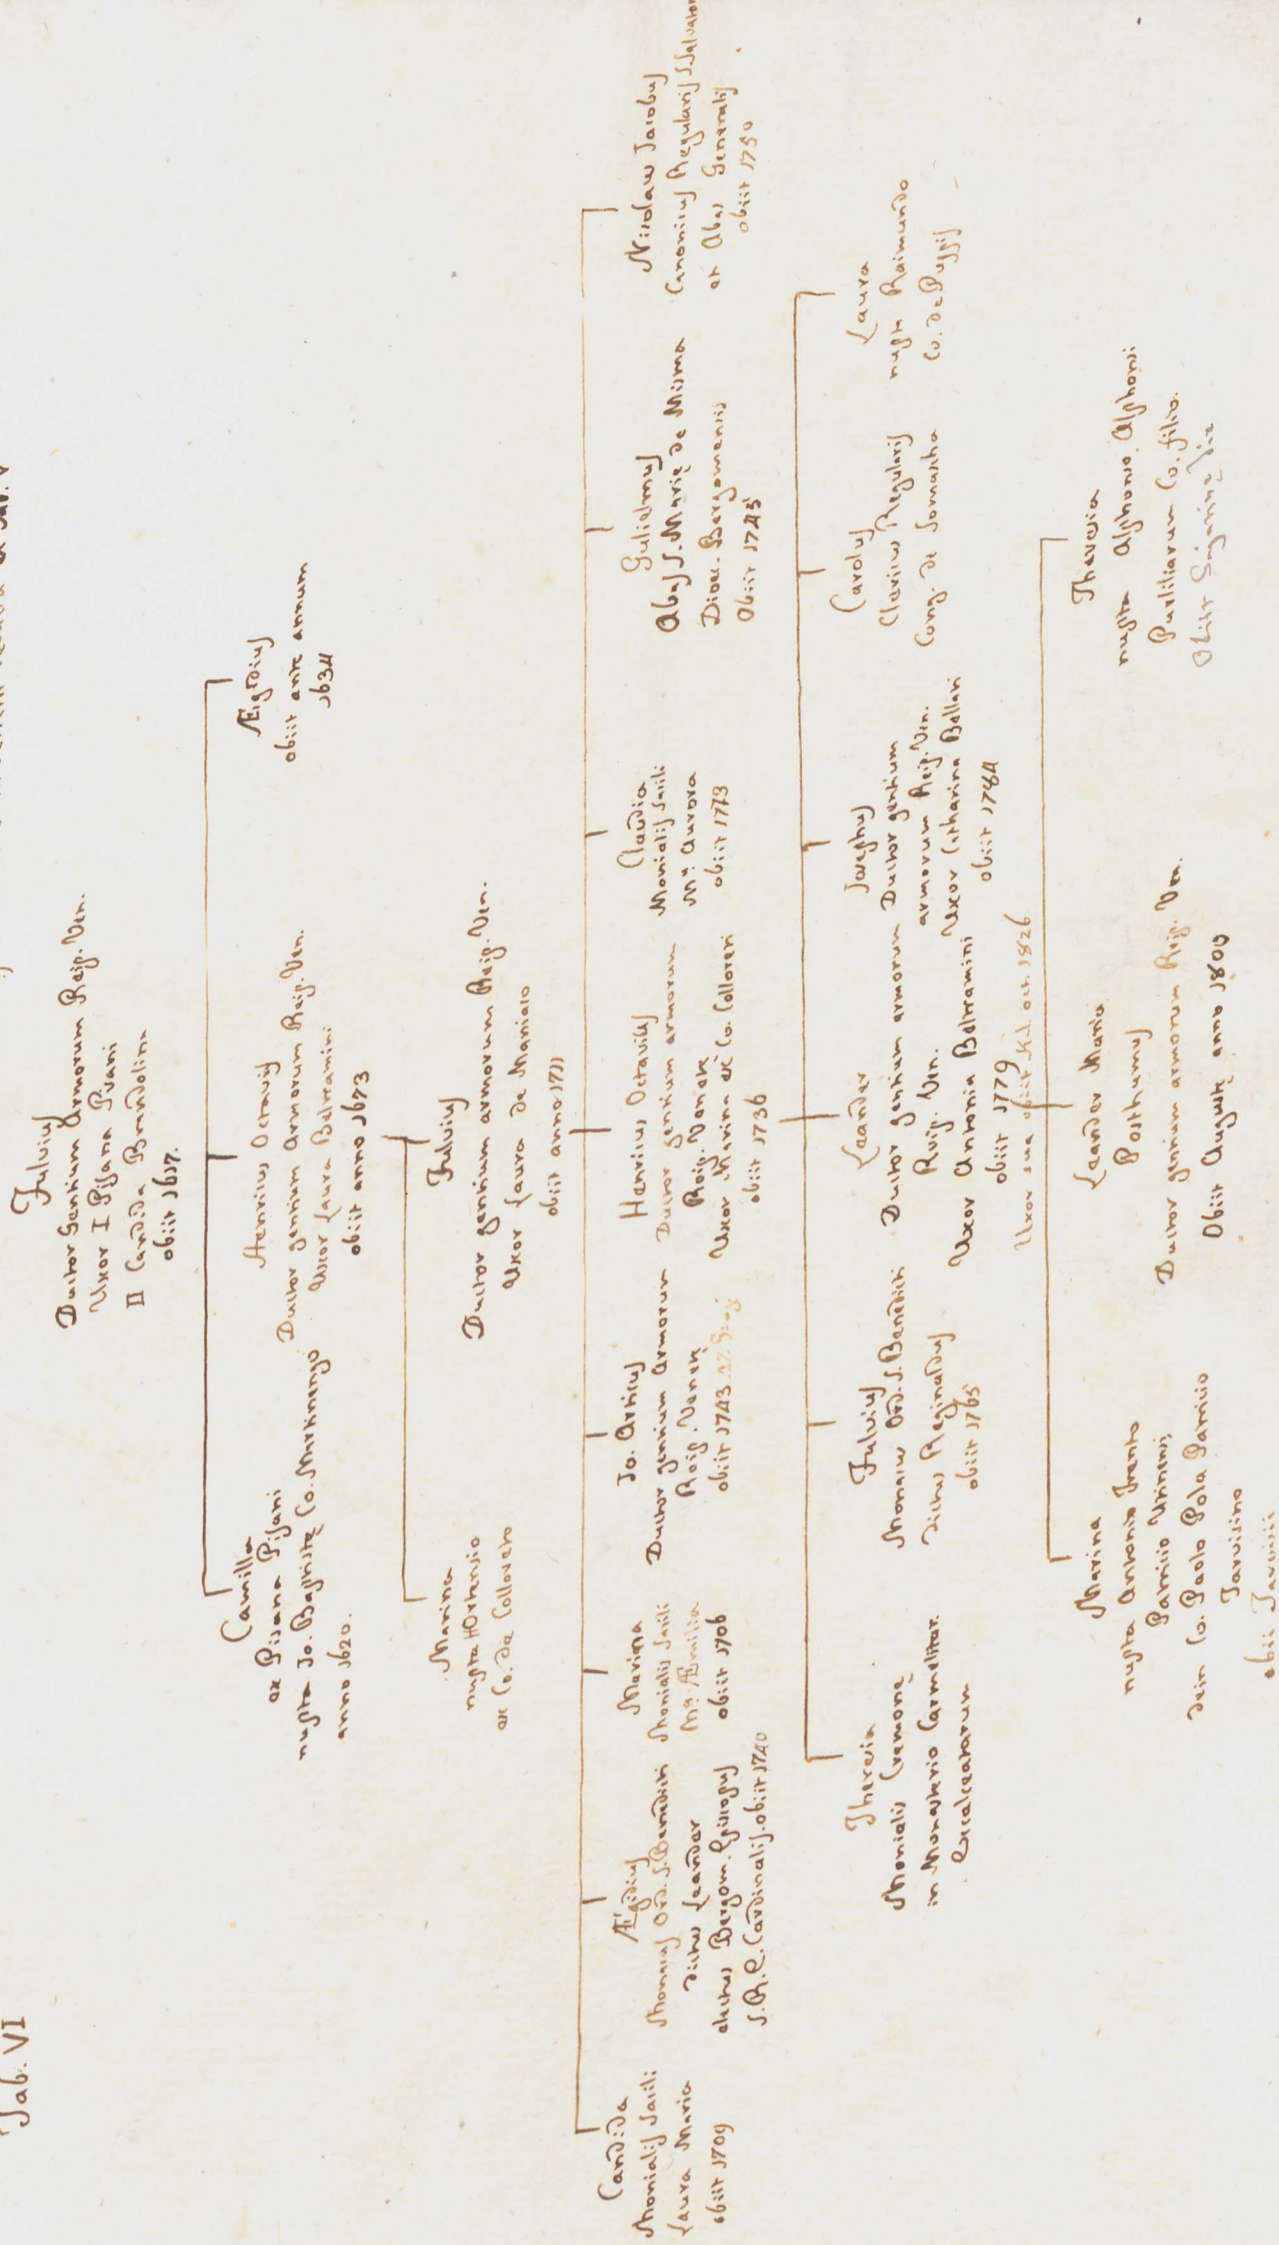 Tab. VI
Fulvius
Ductor Gentium Armorum Reip. Ven.
Uxor I Pisana Pisani
II Candida Brandolina
obiit 1617.
Camilla
ex Pisana Pisani
nupta Jo. Baptistę Co. Martinengo
anno 1620.
Henricus Octavius
Ductor gentium Armorum Reip. Ven.
Uxor Laura Beltramini
obiit anno 1673
Ægidius
obiit ante annum
1634
Marina
nupta Hortensio
ex Co: de Colloreto
Fulvius
Ductor gentium armorum Reip. Ven.
Uxor Laura de Maniaco
obiit anno 1711
Candida
Monialis Sacili
Laura Maria
obiit 1709
Ægidius
Monacus Ord. S. Benedicti
dictus Leander
electus Bergom. Episcopus
S. R. E. Cardinalis. obiit 1740
Marina
Monialis Sacili
Mª Æmilia
obiit 1706
Jo. Articus
Ductor gentium Armorum
Reip. Venetę
obiit 1743.
Henricus Octavius
Ductor gentium armorum
Reip. Venetę
Uxor Marina ex Co. Colloreti
obiit 1736
Claudia
Monialis Sacili
Mª Aurora
obiit 1773
Gulielmus
Abas S. Marię de Misma
Dioec. Bergomensis
Obiit 1745
Nicolaus Jacobus
Canonicus Regularis S. Salvator
et Abas Generalis
obiit 1750
Theresia
Monialis Cremonę
in Monasterio Carmelitar.
Excalceatarum
Fulvius
Monacus Ord. S. Benedicti
dictus Reginaldus
obiit 1765
Leander
Ductor gentium armorum
Reip. Ven.
Uxor Antonia Beltramini
obiit 1779
Uxor sua obiit Kal. oct. 1826
Josephus
Ductor gentium
armorum Reip. Ven.
Uxor Catharina Bellati
obiit 1784
Carolus
Clericus Regularis
Cong. de Somascha
Laura
nupta Raimundo
Co. de Puppis
Marina
nupta Antonio Trento
Patricio Utinensi
dein Co. Paolo Pola Patricio
Tarvisino
obii Tarvisii
Leander Maria
Posthumus
Ductor gentium armorum Reip. Ven.
Obiit Augustę anno 1800
Theresia
nupta Alphonso, Alphonsi
Purliliarum Co. filio.
Obiit